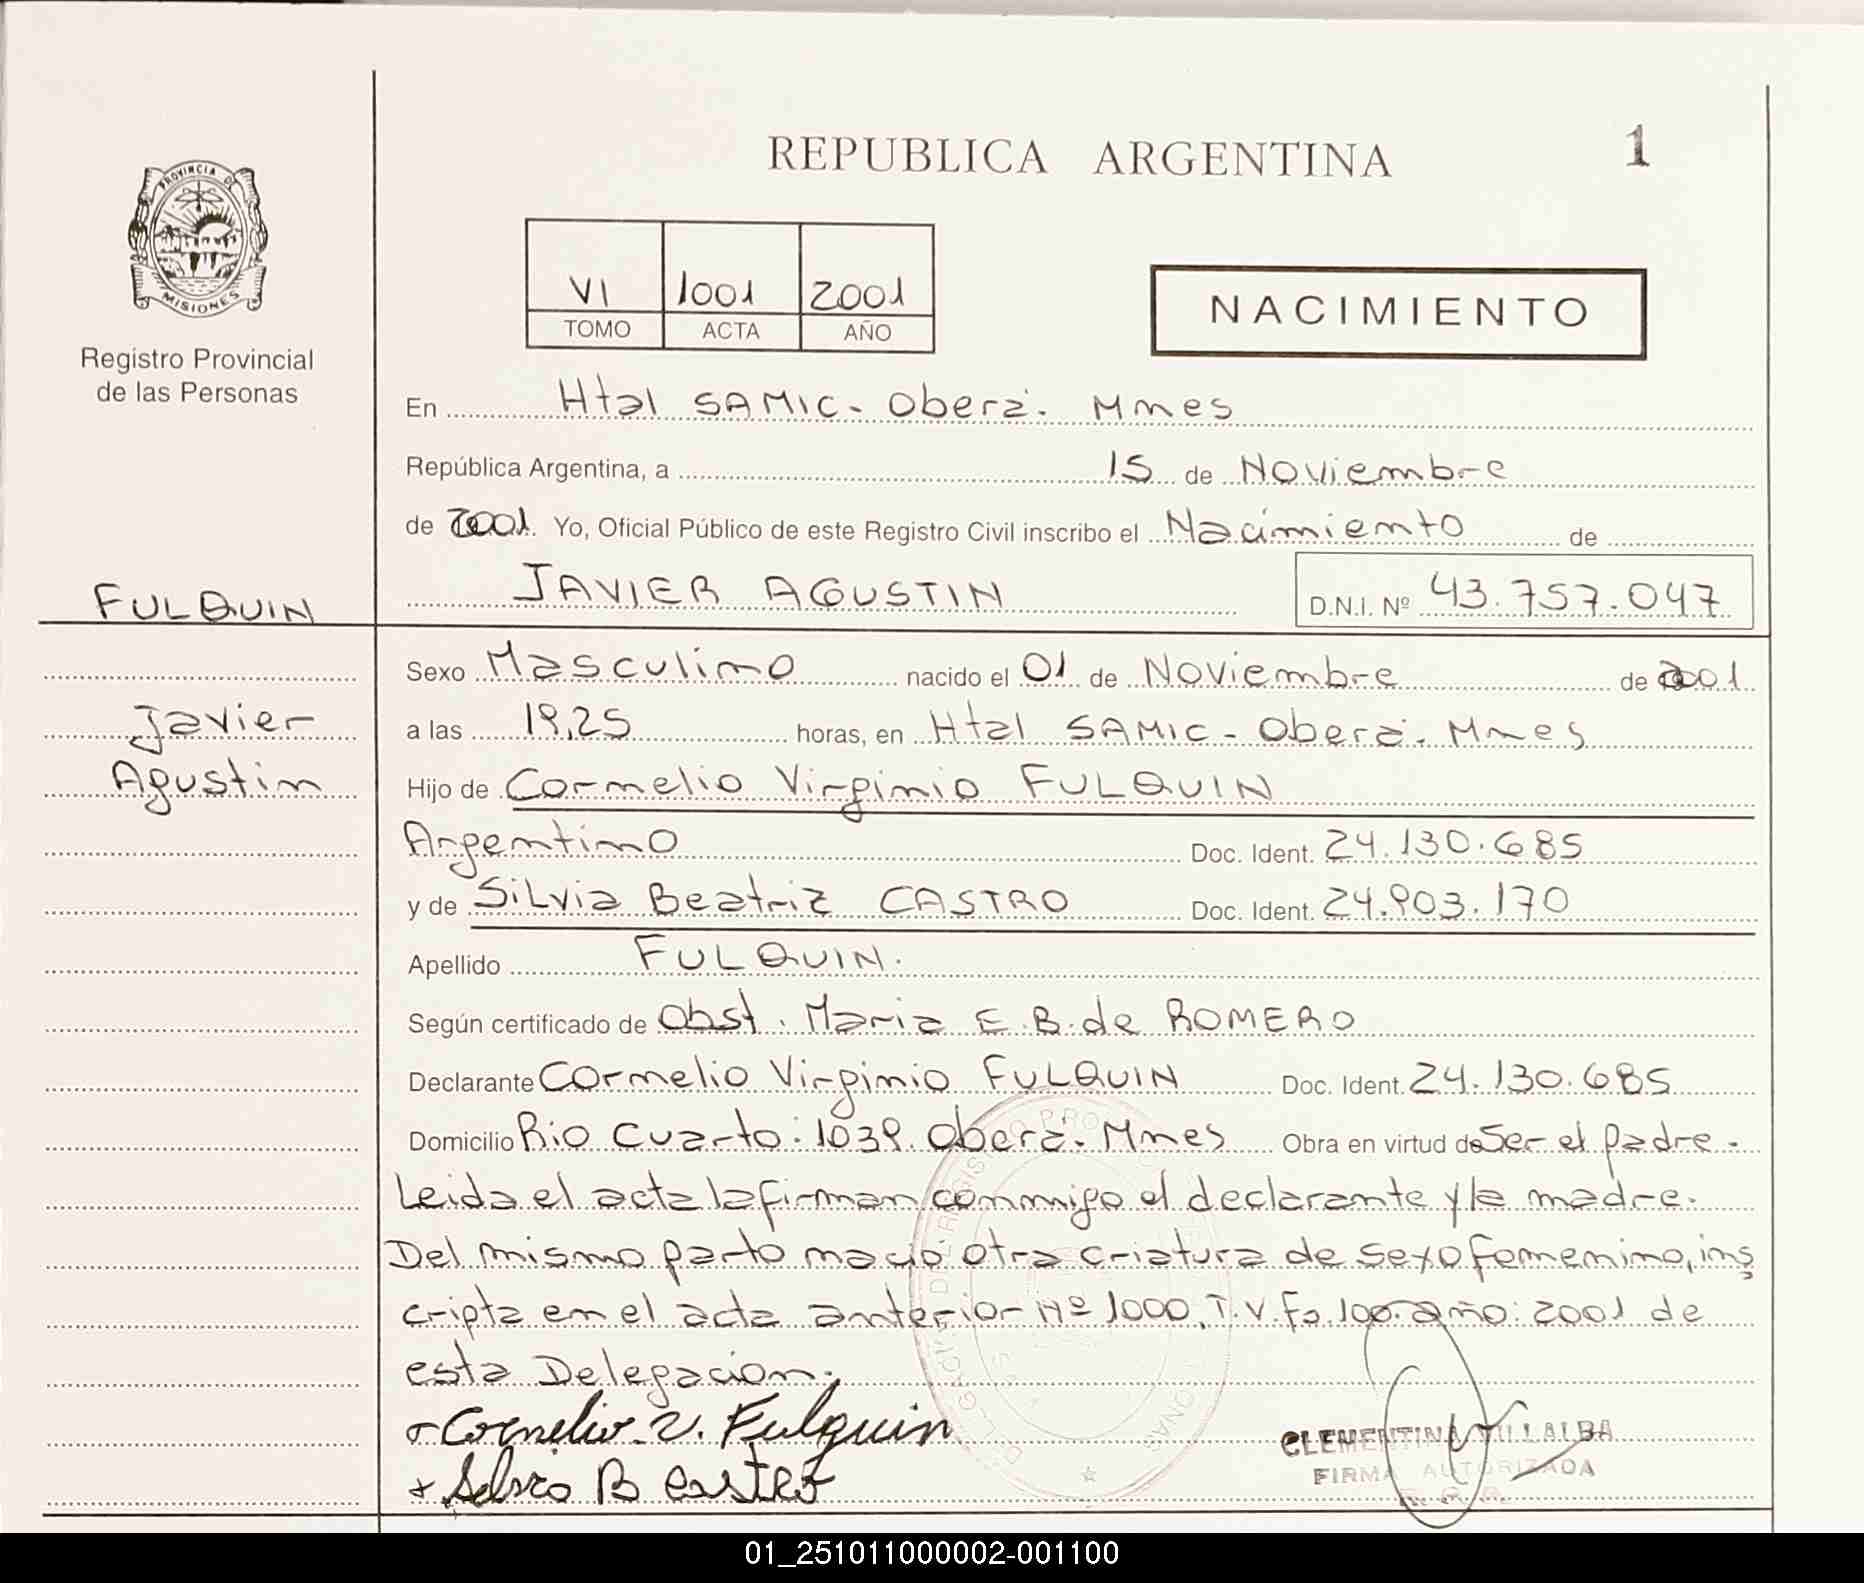 REPUBLICA ARGENTINA
1
PROVINCIA DE
MISIONES
Registro Provincial
de las Personas
VI 1001 2001
TOMO ACTA AÑO
NACIMIENTO
En Htal SAMIC - Oberá. Mnes
República Argentina, a 15 de Noviembre
de 2001. Yo, Oficial Público de este Registro Civil inscribo el Nacimiento de
JAVIER AGUSTIN D.N.I. Nº 43.757.047
FULQUIN
Javier
Agustin
Sexo Masculino nacido el 01 de Noviembre de 2001.
a las 19,25 horas, en Htal SAMIC - Oberá. Mnes
Hijo de Cornelio Virginio FULQUIN
Argentino Doc. Ident. 24.130.685
y de Silvia Beatriz CASTRO Doc. Ident. 24.903.170
Apellido FULQUIN.
Según certificado de Obst. Maria E.B. de ROMERO
Declarante Cornelio Virginio FULQUIN Doc. Ident. 24.130.685
Domicilio Rio Cuarto: 1039. Oberá. Mnes Obra en virtud de Ser el padre.
Leida el acta la firman conmigo el declarante y la madre.
Del mismo parto nacio otra criatura de sexo femenino, ins
cripta en el acta anterior Nº 1000, T.V. Fº 100. año: 2001 de
esta Delegacion.
Cornelio V. Fulquin
CLEMENTINA VILLALBA
FIRMA AUTORIZADA
Silvia B Castro
01_251011000002-001100